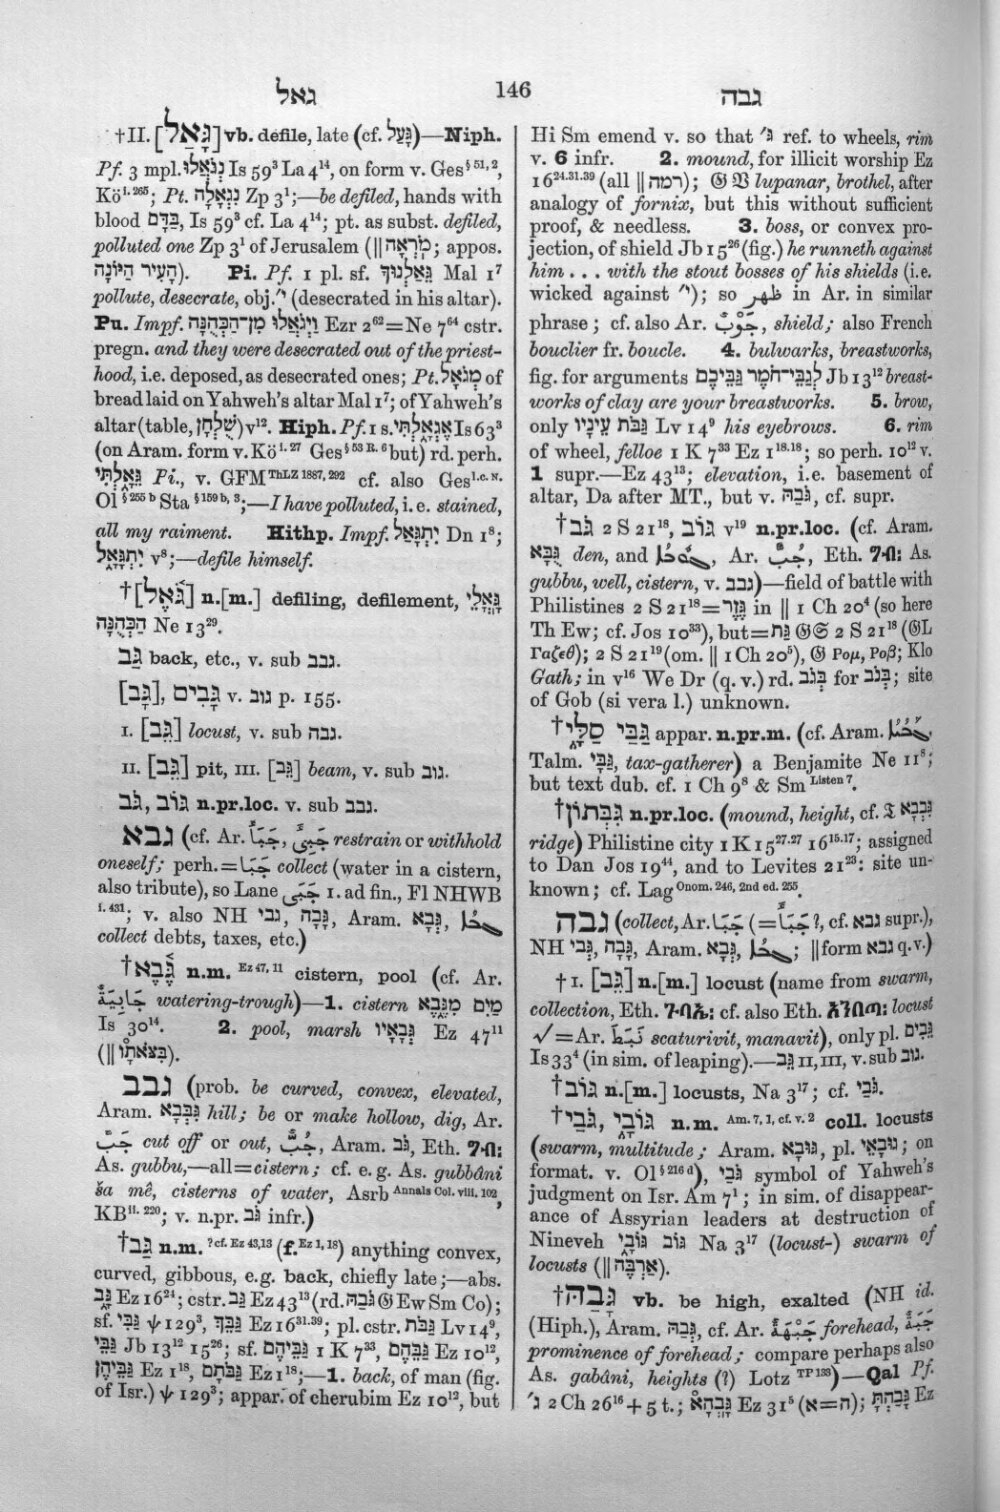 גאל
146
גבה
†II. [גָּאַל] vb. defile, late (cf. גָּעַל)—Niph.
Pf. 3 mpl. נְגֹאֲלוּ Is 59³ La 4¹⁴, on form v. Ges§ 51, 2,
Köi. 265; Pt. נִגְאָלָה Zp 3¹;—be defiled, hands with
blood בַּדָּם, Is 59³ cf. La 4¹⁴; pt. as subst. defiled,
polluted one Zp 3¹ of Jerusalem (‖ מֹרְאָה; appos.
הָעִיר הַיּוֹנָה). Pi. Pf. 1 pl. sf. גֵּאַלְנוּךָ Mal 1⁷
pollute, desecrate, obj. י׳ (desecrated in his altar).
Pu. Impf. וַיְגֹאֲלוּ מִן־הַכְּהֻנָּה Ezr 2⁶²=Ne 7⁶⁴ cstr.
pregn. and they were desecrated out of the priest-
hood, i.e. deposed, as desecrated ones; Pt. מְגֹאָל of
bread laid on Yahweh's altar Mal 1⁷; of Yahweh's
altar (table, שֻׁלְחָן) v¹². Hiph. Pf. 1 s. אֶגְאָלְתִּי Is 63³
(on Aram. form v. Köi. 27 Ges§ 53 R. 6 but) rd. perh.
גֵּאָלְתִּי Pi., v. GFM ThLZ 1887, 292 cf. also Ges l.c. N.
Ol § 255 b Sta § 159 b, 3;—I have polluted, i.e. stained,
all my raiment. Hithp. Impf. יִתְגָּאַל Dn 1⁸;
יִתְגָּאָל v⁸;—defile himself.
†[גֹּאֶל] n.[m.] defiling, defilement, גָּאֳלֵי
הַכְּהֻנָּה Ne 13²⁹.
גַּב back, etc., v. sub גבב.
[גָּב], גָּבִים v. גוב p. 155.
I. [גֵּב] locust, v. sub גבה.
II. [גֵּב] pit, III. [גֵּב] beam, v. sub גוב.
גּוֹב, גֹּב n.pr.loc. v. sub גבב.
גבא (cf. Ar. جَبَأَ, جَبِئَ restrain or withhold
oneself; perh.=جَبَا collect (water in a cistern,
also tribute), so Lane جَبَى 1. ad fin., Fl NHWB
i. 431; v. also NH גבי, גָּבָה, Aram. גְּבָא, ܓܒܐ
collect debts, taxes, etc.)
†גֶּבֶא n.m. Ez 47, 11 cistern, pool (cf. Ar.
جَابِيَةٌ watering-trough)—1. cistern מַיִם מִגֶּבֶא
Is 30¹⁴. 2. pool, marsh גְּבָאָיו Ez 47¹¹
(‖ בִּצֹּאתָיו).
גבב (prob. be curved, convex, elevated,
Aram. גִּבְּבָא hill; be or make hollow, dig, Ar.
جَبَّ cut off or out, جُبٌّ, Aram. גֹּב, Eth. ጉብ፡
As. gubbu,—all=cistern; cf. e. g. As. gubbâni
ša mê, cisterns of water, Asrb Annals Col. viii. 102,
KBii. 220; v. n.pr. גֹּב infr.)
†גַּב n.m. ?cf. Ez 43,13 (f. Ez 1, 18) anything convex,
curved, gibbous, e.g. back, chiefly late;—abs.
גָּב Ez 16²⁴; cstr. גַּב Ez 43¹³ (rd. גֹּבַהּ 𝔊 Ew Sm Co);
sf. גַּבִּי ψ 129³, גַּבֵּךְ Ez 16³¹·³⁹; pl. cstr. גַּבֹּת Lv 14⁹,
גַּבֵּי Jb 13¹² 15²⁶; sf. גַּבֵּיהֶם 1 K 7³³, גַּבֵּהֶם Ez 10¹²,
גַּבֵּיהֶן Ez 1¹⁸, גַּבֹּתָם Ez 1¹⁸;—1. back, of man (fig.
of Isr.) ψ 129³; appar. of cherubim Ez 10¹², but
Hi Sm emend v. so that ג׳ ref. to wheels, rim
v. 6 infr. 2. mound, for illicit worship Ez
16²⁴·³¹·³⁹ (all ‖ רמה); 𝔊 𝔙 lupanar, brothel, after
analogy of fornix, but this without sufficient
proof, & needless. 3. boss, or convex pro-
jection, of shield Jb 15²⁶ (fig.) he runneth against
him . . . with the stout bosses of his shields (i.e.
wicked against י׳); so ظهر in Ar. in similar
phrase; cf. also Ar. جَوْبٌ, shield; also French
bouclier fr. boucle. 4. bulwarks, breastworks,
fig. for arguments לְגַבֵּי־חֹמֶר גַּבֵּיכֶם Jb 13¹² breast-
works of clay are your breastworks. 5. brow,
only גַּבֹּת עֵינָיו Lv 14⁹ his eyebrows. 6. rim
of wheel, felloe 1 K 7³³ Ez 1¹⁸·¹⁸; so perh. 10¹² v.
1 supr.—Ez 43¹³; elevation, i.e. basement of
altar, Da after MT., but v. גֹּבַהּ, cf. supr.
†גֹּב 2 S 21¹⁸, גּוֹב v¹⁹ n.pr.loc. (cf. Aram.
גֻּבָּא den, and ܓܘܒܐ, Ar. جُبٌّ, Eth. ጉብ፡ As.
gubbu, well, cistern, v. גבב)—field of battle with
Philistines 2 S 21¹⁸=גֶּזֶר in ‖ 1 Ch 20⁴ (so here
Th Ew; cf. Jos 10³³), but=גַּת 𝔊𝔖 2 S 21¹⁸ (𝔊L
Γαζεθ); 2 S 21¹⁹ (om. ‖ 1 Ch 20⁵), 𝔊 Ρομ, Ροβ; Klo
Gath; in v¹⁶ We Dr (q. v.) rd. בְּגֹב for בְּנֹב; site
of Gob (si vera l.) unknown.
†גַּבַּי סַלָּי appar. n.pr.m. (cf. Aram.
Talm. גַּבַּי, tax-gatherer) a Benjamite Ne 11⁸;
but text dub. cf. 1 Ch 9⁸ & Sm Listen 7.
†גִּבְּתוֹן n.pr.loc. (mound, height, cf. 𝔗 גִּבְּבָא
ridge) Philistine city 1 K 15²⁷·²⁷ 16¹⁵·¹⁷; assigned
to Dan Jos 19⁴⁴, and to Levites 21²³: site un-
known; cf. Lag Onom. 246, 2nd ed. 255.
גבה (collect, Ar. جَبَا (=جَبَأَ?, cf. גבא supr.),
NH גְּבִי, גָּבָה, Aram. גְּבָא, ܓܒܐ; ‖form גבא q.v.)
†I. [גֵּב] n.[m.] locust (name from swarm,
collection, Eth. ጉብኤ፡ cf. also Eth. አንበጣ፡ locust
√=Ar. نَبَطَ scaturivit, manavit), only pl. גֵּבִים
Is 33⁴ (in sim. of leaping).—גֵּב II, III, v. sub גוב.
†גּוֹב n.[m.] locusts, Na 3¹⁷; cf. גֹּבַי.
†גּוֹבַי, גֹּבַי n.m. Am. 7, 1, cf. v. 2 coll. locusts
(swarm, multitude; Aram. גּוֹבָא, pl. גּוֹבָאֵי; on
format. v. Ol§ 216 d), גֹּבַי symbol of Yahweh's
judgment on Isr. Am 7¹; in sim. of disappear-
ance of Assyrian leaders at destruction of
Nineveh גּוֹב גּוֹבָי Na 3¹⁷ (locust-) swarm of
locusts (‖ אַרְבֶּה).
†גָּבַהּ vb. be high, exalted (NH id.
(Hiph.), Aram. גְּבַהּ, cf. Ar. جَبْهَةٌ forehead,
prominence of forehead; compare perhaps also
As. gabâni, heights (?) Lotz TP 133)—Qal Pf.
ג׳ 2 Ch 26¹⁶ + 5 t.; גָּבְהָא Ez 31⁵ (ה=א); גָּבַהְתָּ Ez